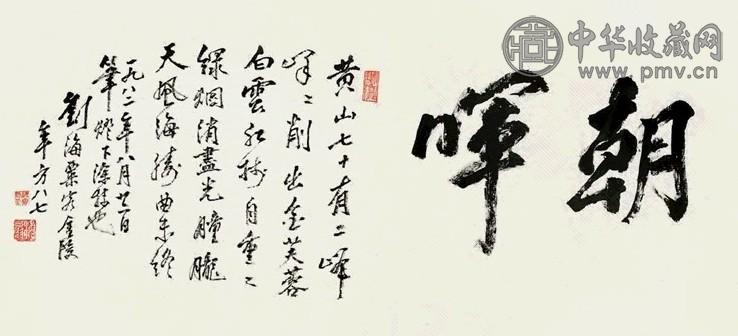 中华收藏网
www.pmv.cn
朝暉
黄山七十有二峰
峰〻削出金芙蓉
白雲紅樹自重〻
綠烟消盡光朣朧
天風海濤曲未終
一九八二年八月廿一日
筆 燈下
劉海粟客金陵
年方八七